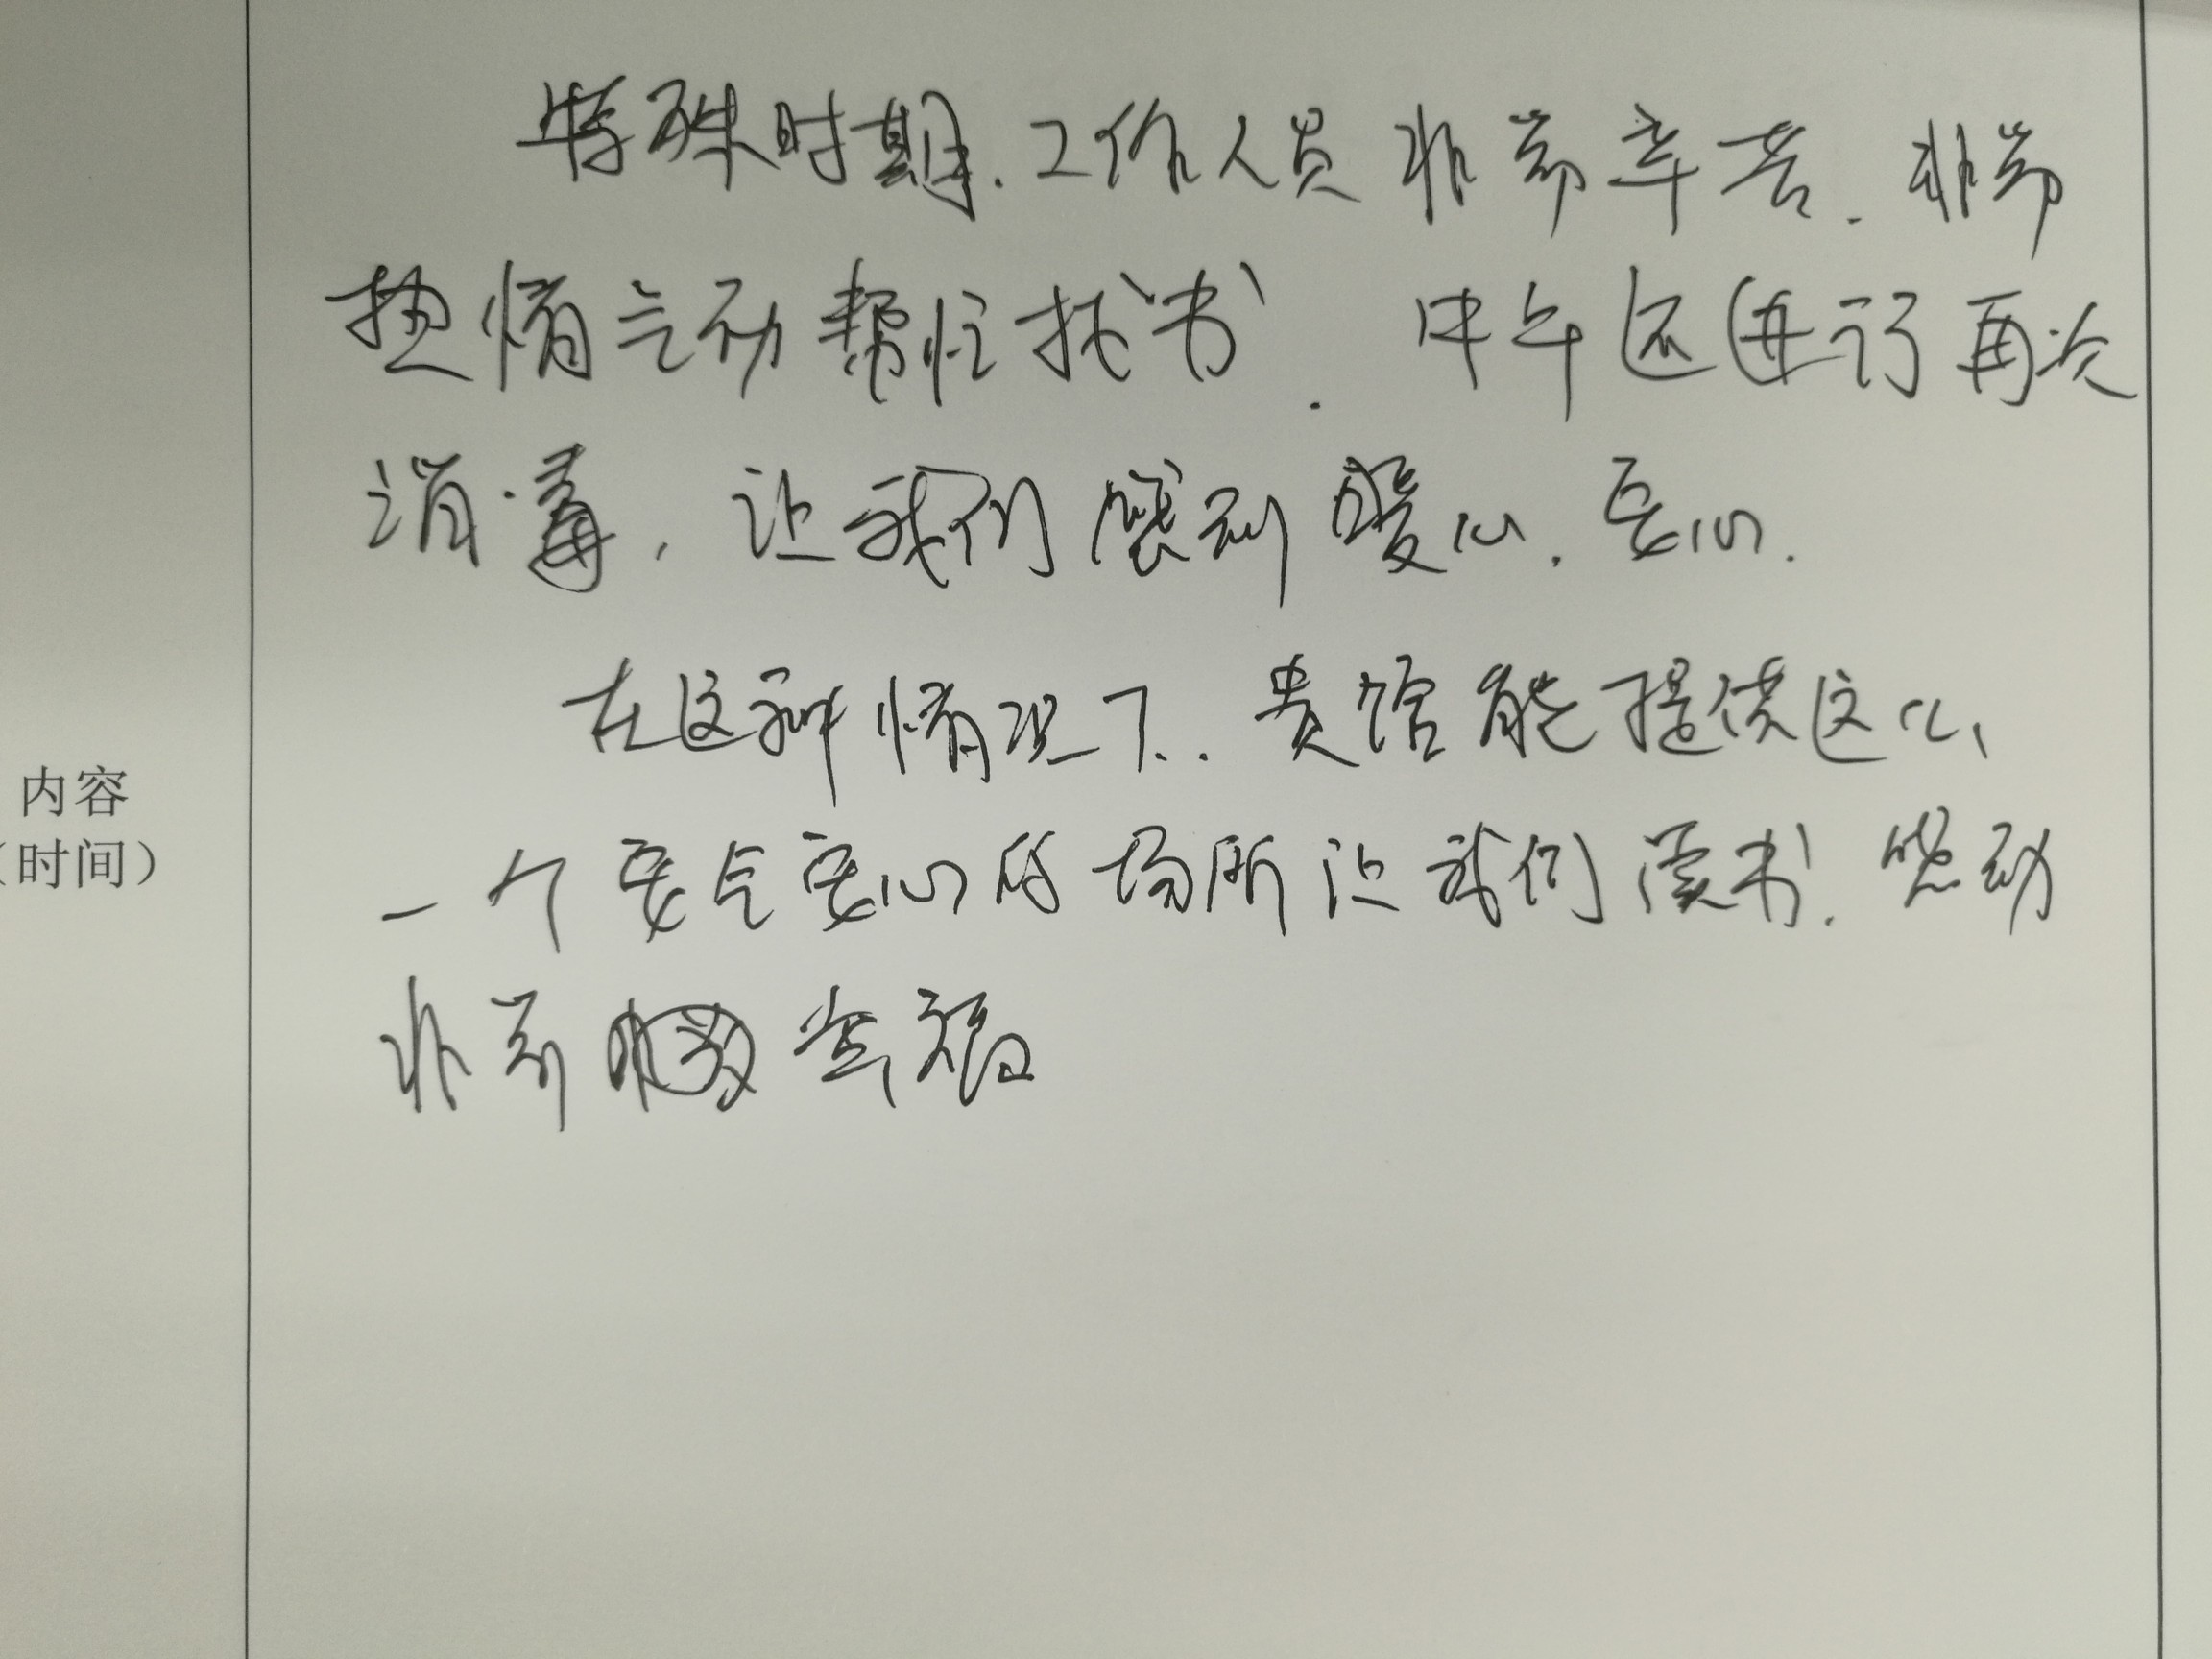 特殊时期.工作人员非常辛苦.非常
热情主动帮忙找书.中午还进行再次
消毒,让我们感到暖心.安心.
在这种情况下..贵馆能提供这么
内容
一个安全安心的场所让我们读书.感动
(时间)
非常 幸福